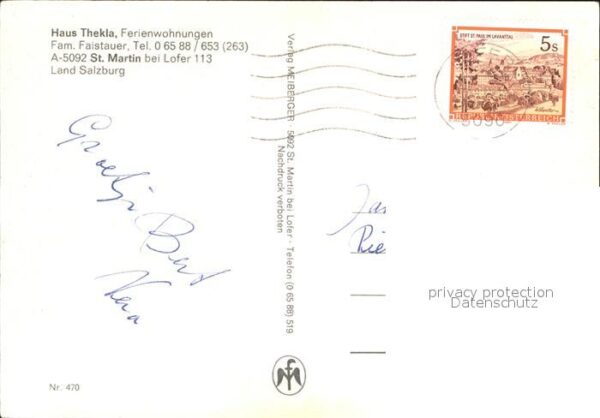 Haus Thekla, Ferienwohnungen
Fam. Faistauer, Tel. 0 65 88 / 653 (263)
A-5092 St. Martin bei Lofer 113
Land Salzburg
STIFT ST. PAUL IM LAVANTTAL
5 S
REPUBLIK ÖSTERREICH
5090
Verlag MEIBERGER · 5092 St. Martin bei Lofer - Telefon (0 65 88) 519
Nachdruck verboten
Groetjes
Bert
Vera
Fam
Rie
privacy protection
Datenschutz
Nr. 470